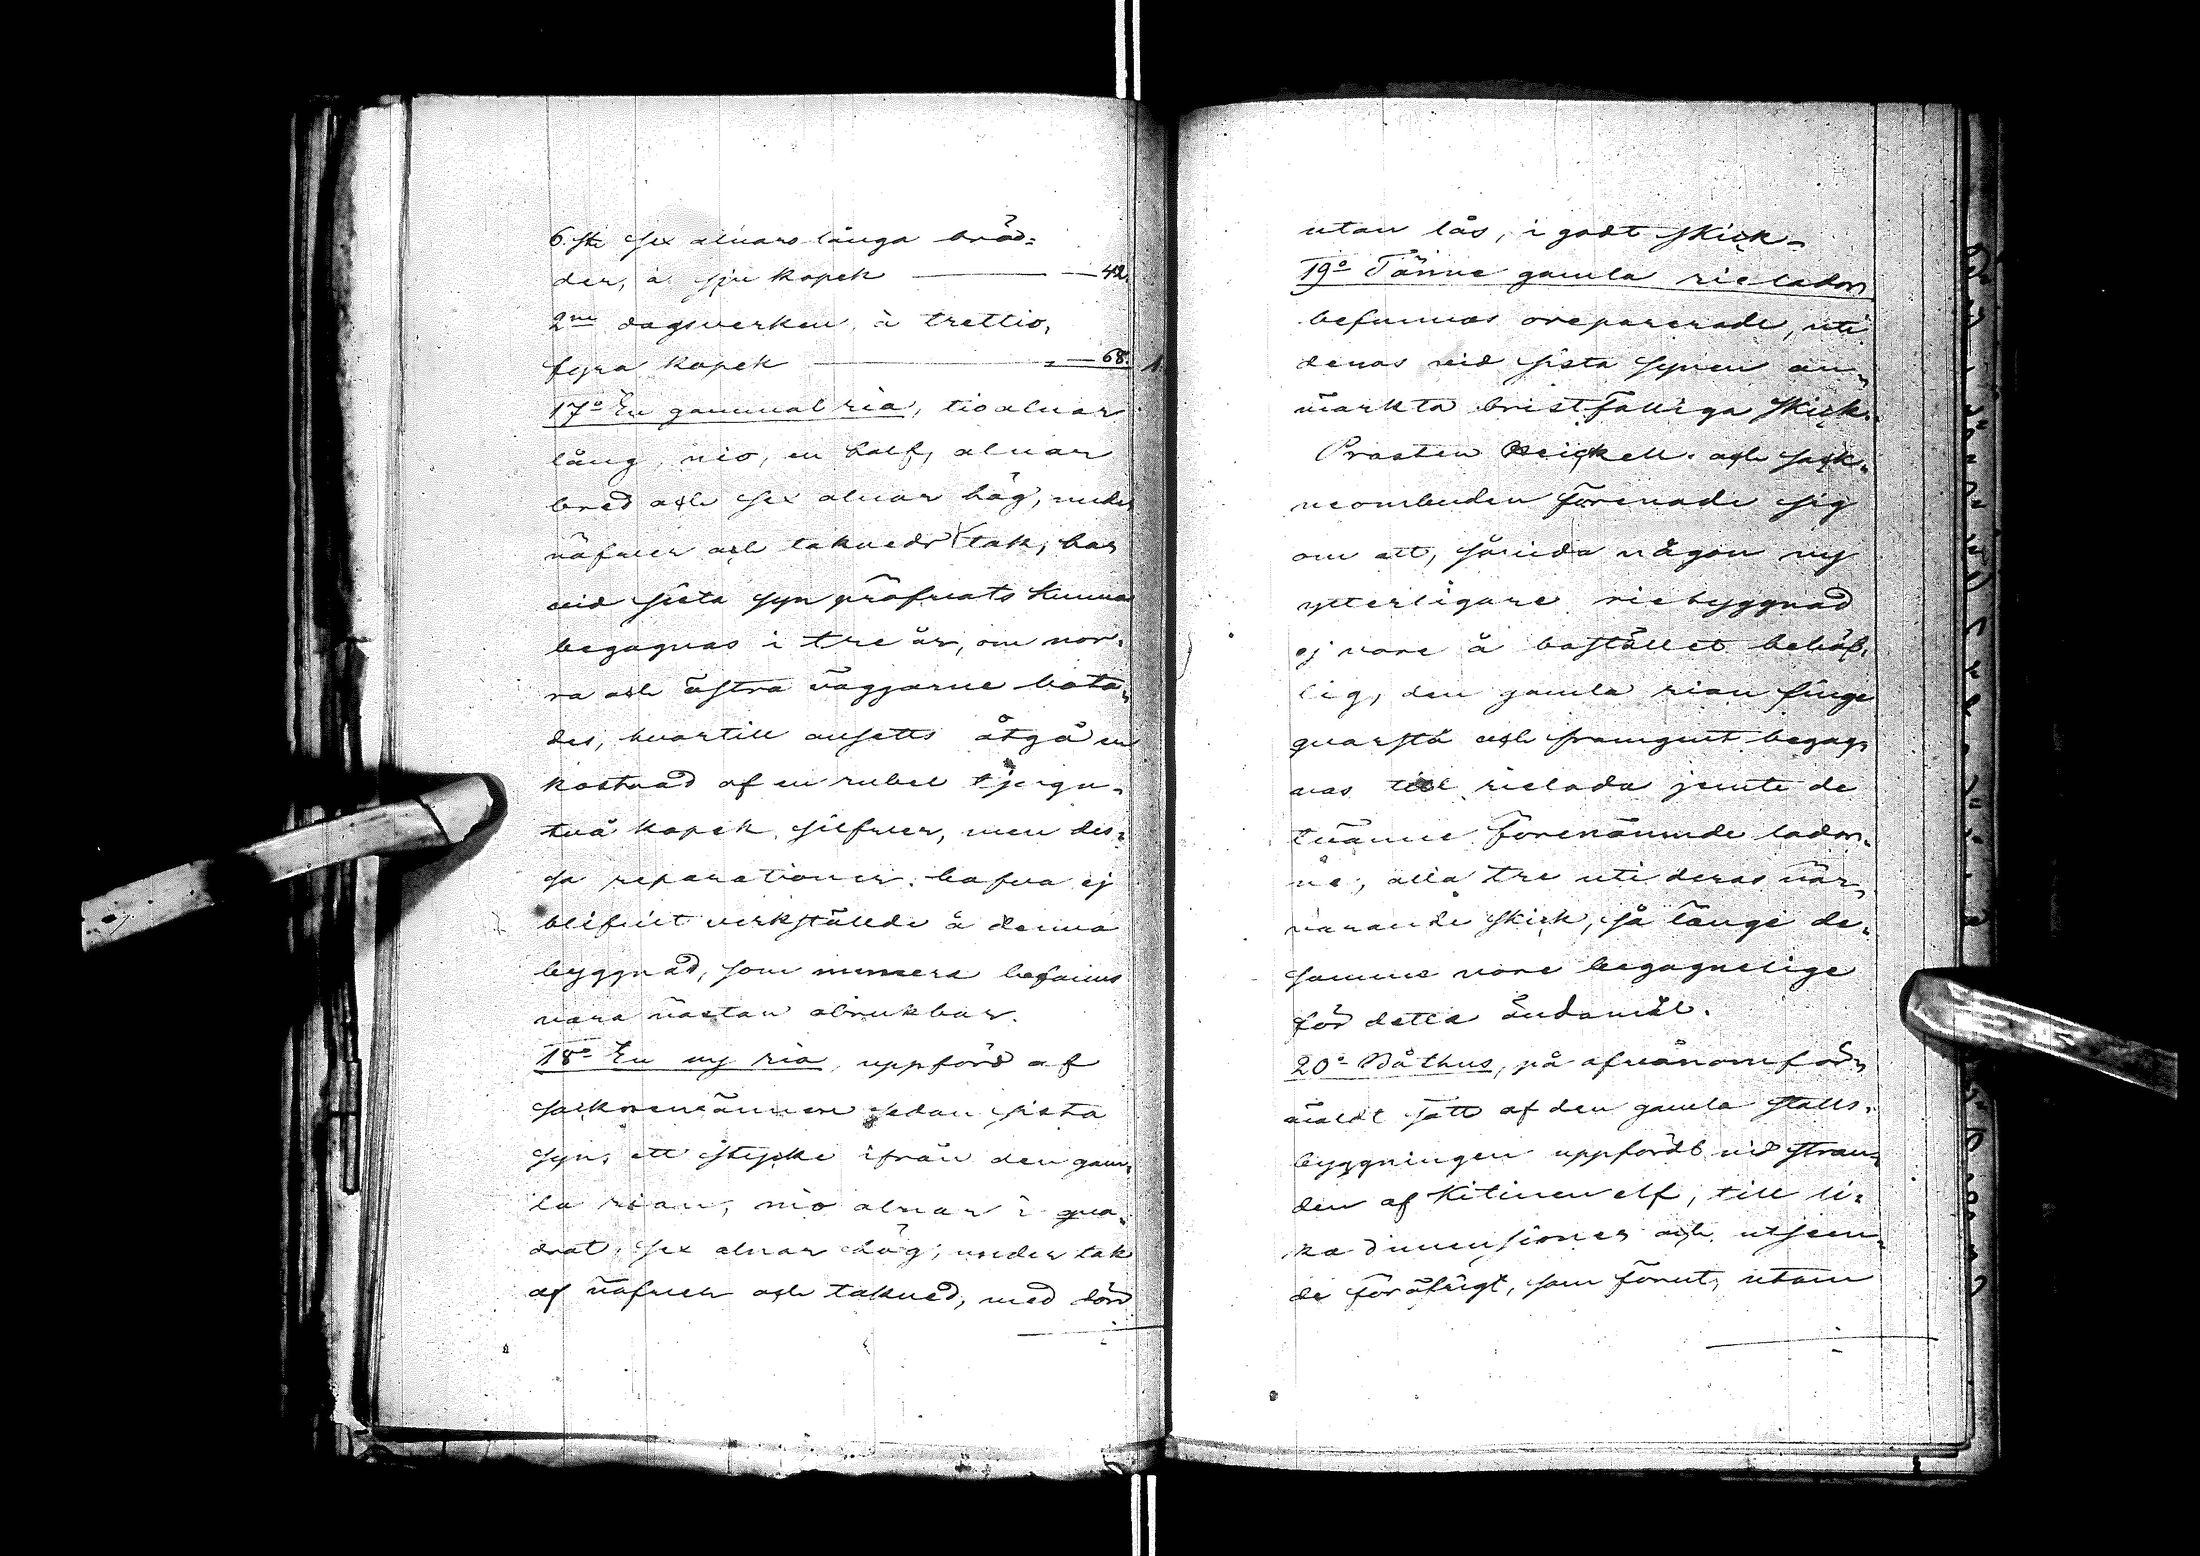 6. st. sex alnars långa bräd-
der, à sju kopek — — 42.
2ne dagsverken, à trettio,
fyra kopek — „ — 68. 1
17o En gammal ria, tio alnar
lång, nio, en half, alnar
bred och sex alnar hög, under
näfver och takveds tak, har
vid sista syn pröfvats kunna
begagnas i tre år, om nor-
ra och östra väggarne bota-
des, hvartill ansetts åtgå en
kostnad af en rubel tjugu-
två kopek silfver, men des-
sa reparationer hafva ej
blifvit verkställde å denna
byggnad, som numera befanns
vara nästan obrukbar.
18o En ny ria, uppförd af
socknemännen sedan sista
syn, ett stycke ifrån den gam-
la rian, nio alnar i qva-
drat, sex alnar hög, under tak
af näfver och takved, med dörr
utan lås, i godt skick.
19o Tänne gamla rielador
befunnos oreparerade, uti
deras vid sista synen an-
märkta bristfälliga skick.
Prosten Heickell och sock-
neombuden förenade sig
om att, såvida någon ny
ytterligare riebyggnad
ej vore å bostället behöf-
lig, den gamla rian finge
qvarstå och framgent begag-
nas till rielada jemte de
tvänne förenämnde lador-
ne, alla tre uti deras när-
varande skick, så länge de-
samme vore begagnelige
för detta ändamål.
20o Båthus, på ofvanomför-
mäldt sätt af den gamla stalls-
byggningen uppfördt vid stran-
den af Kitinen elf, till li-
ka dimensioner och utseen-
de föröfrigt, som förut, utan